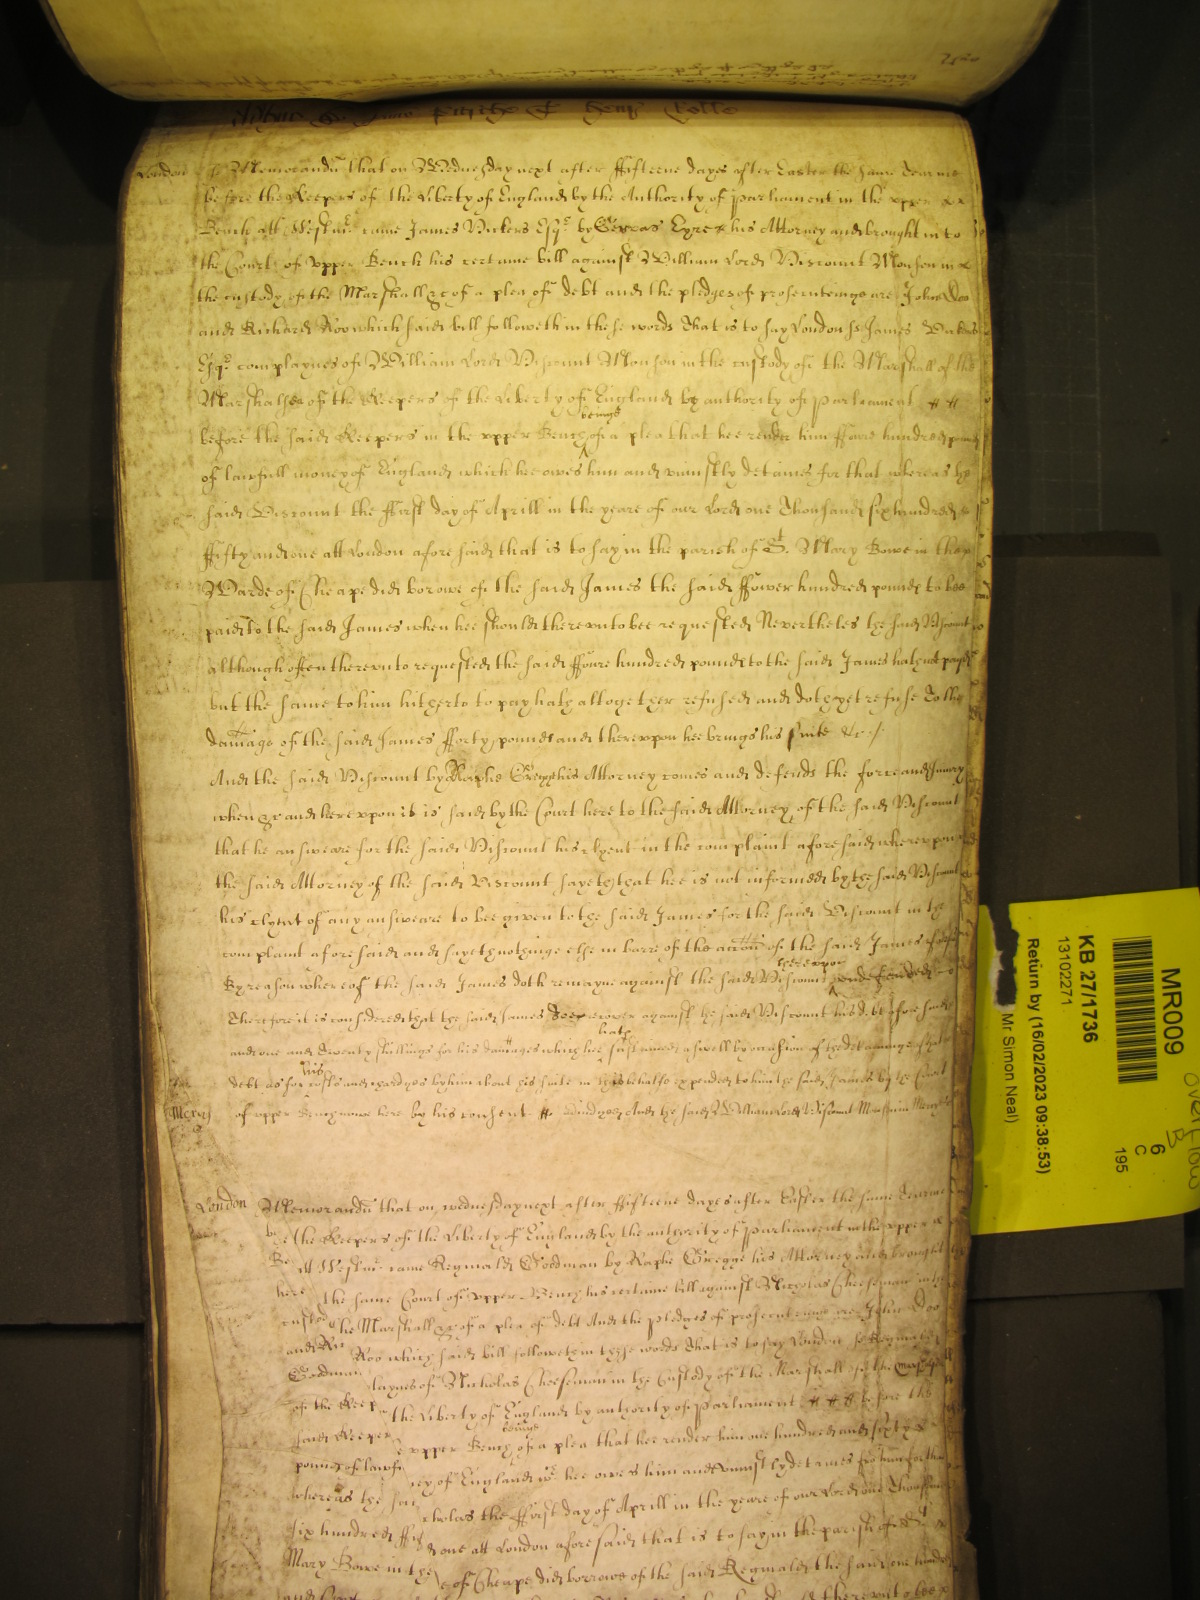 London ss Memorandũ that on Wednesday next after ffifteene dayes after Easter the same Tearme
before the Keepers of the Liberty of England by the Authority of Parliament in the upper
Bench att Westm̃ came James Vickers Esqr by Gervas Eyre his Attorney and brought into
the Court of upper Bench his certaine bill against William Lord Viscount Monson in
the custody of the Marshall &c of a plea of debt and the pledges of prosecuteinge are John Doo
and Richard Roo which said bill followeth in these words That is to say London ss James
Esqr complaynes of William Lord Viscount Monson in the custody of the Marshall of the
Marshalsea of the Keepers of the Liberty of England by authority of Parliament
before the said Keepers in the upper Bench beinge of a plea that hee render him ffowre hundred pounds
of lawfull money of England which hee owes him and uniustly detaines for that whereas the
said Viscount the ffirst day of Aprill in the yeare of our Lord one Thousand six hundred
ffifty and one att London aforesaid that is to say in the parish of St. Mary Bowe in the
Warde of Cheape did borowe of the said James the said ffower hundred pounds to bee
paid to the said James when hee should thereunto bee requested Nevertheles the said Viscount
although often thereunto requested the said ffoure hundred pounds to the said James hath not payd
but the same to him hitherto to pay hath altogether refused and doth yet refuse To the
damage of the said James fforty pounds and thereupon hee brings his suite &c
And the said Viscount by Raphe Gregge his Attorney comes and defends the force and Iniury
when &c and hereupon it is said by the Court here to the said Attorney of the said Viscount
that he answeare for the said Viscount his clyent in the complaint aforesaid whereupon
the said Attorney of the said Viscount sayeth that hee is not informed by the said Viscount
his clyent of any answeare to bee given to the said James for the said Viscount in the
complaint aforesaid and sayeth nothinge else in barre of the accõn of the said James aforesaid
By reason whereof the said James doth remayne against the said Viscount thereupon
Therefore it is considered that the said James doe recover against the said Viscount his debt aforesaid
and one and Twenty shillings for his damages which hee hath sustained aswell by occasion of the detaininge of that
debt as for his costs and chardges by him about his suite in this behalfe expended to him the said James by the Court
Mercy of upper Bench nowe here by his consent Adiudged And the said William Lord Viscount Monson in Mercy
London Memorandũ that on wednesday next after ffifteene dayes after Easter the same Tearme
the Keepers of the Liberty of England by the authority of Parliament in the upper
Be att Westm̃ came Reginald Goodman by Raphe Gregge his Attorney and brought
here the same Court of upper Bench his certaine bill against Nicholas Cheeseman in the
custo he Marshall &c of a plea of debt And the pledges of prosecuteinge are John Doo
and Ric Roo which said bill followeth in these words That is to say London ss Reginald
Goodman laynes of Nicholas Cheeseman in the Custody of the Marshall of the
of the Keep the Liberty of England by authority of Parliament before the
said Keeper upper Bench beinge of a plea that hee render him one hundred and sixty
pounds of lawfu ney of England wch hee owes him and uniustly detaines for that
whereas the sai cholas the ffirst day of Aprill in the yeare of our Lord one Thousand
six hundred ffif d one att London aforesaid that is to say in the parish of St
Mary Bowe in the e of Cheape did borrowe of the said Reginald the said one hundred
MR009
KB 27/1736
13102271
Return by (16/02/2023 09:38:53)
Mr Simon Neal)
6
C
195
overflow
B